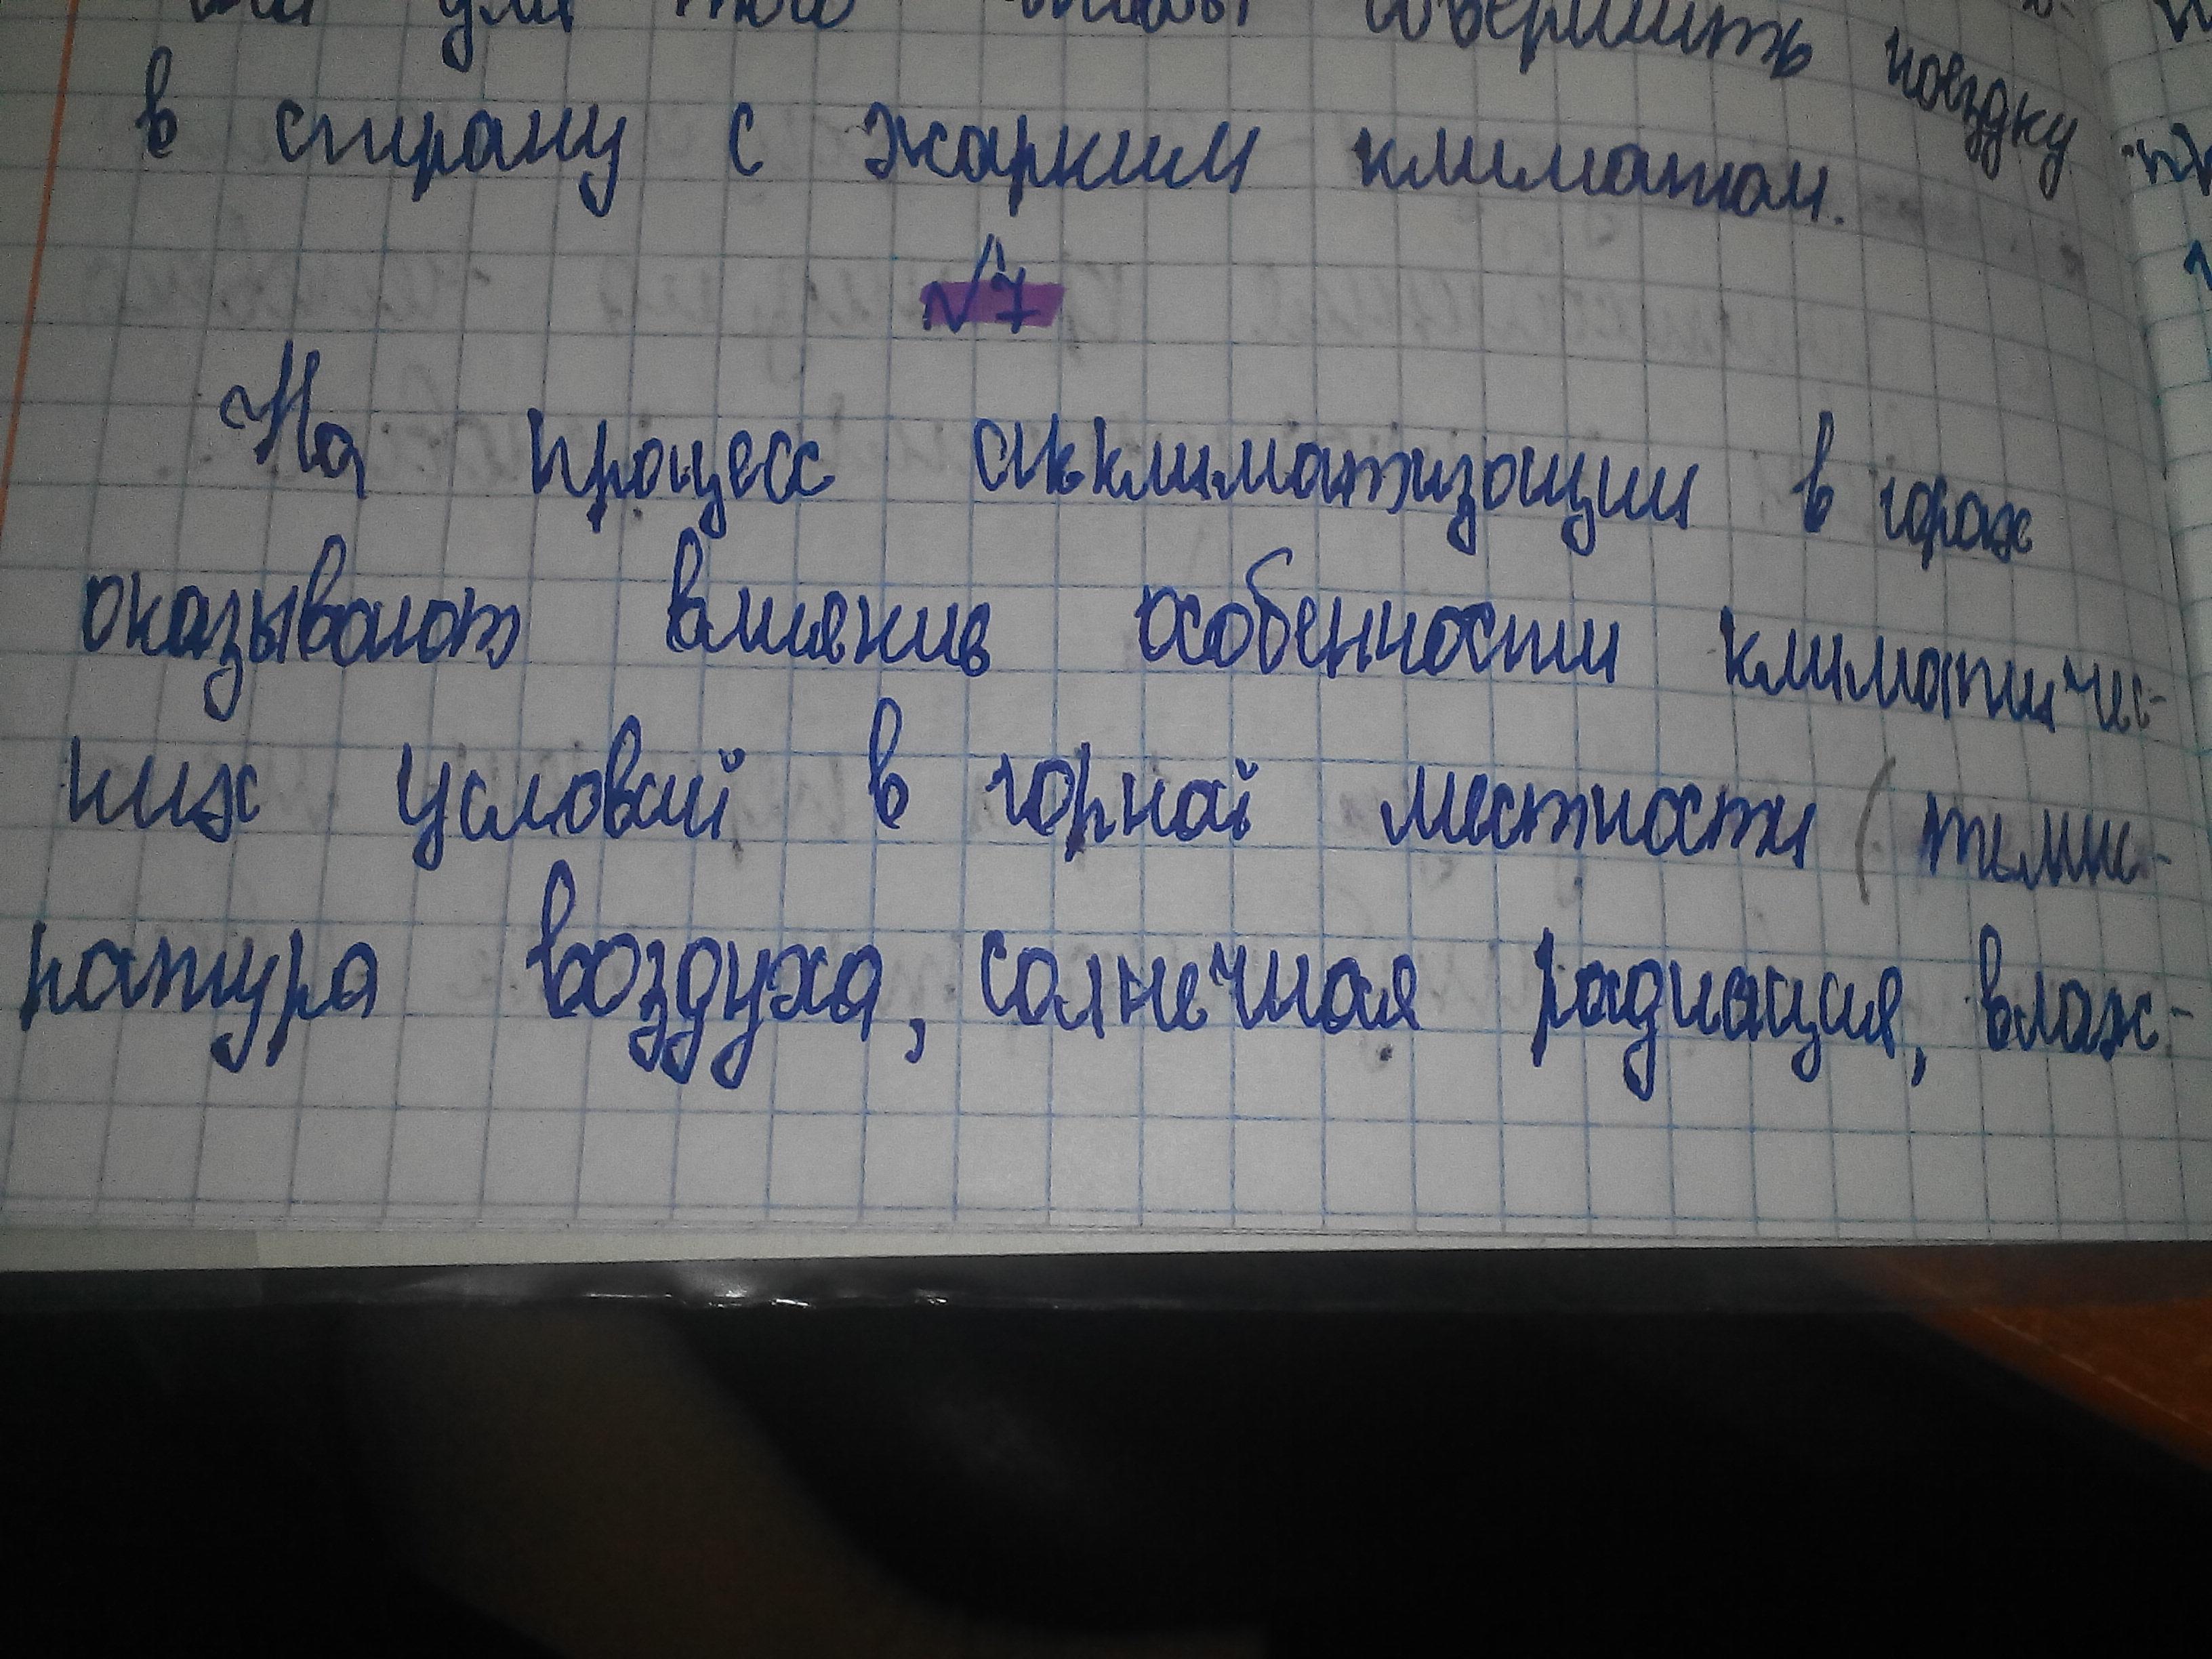 для того чтобы совершить поездку
в страну с жарким климатом.
√7
На процесс акклиматизации в горах
оказывают влияние особенности климатичес-
ких условий в горной местности (темпе-
ратура воздуха, солнечная радиация, влаж-